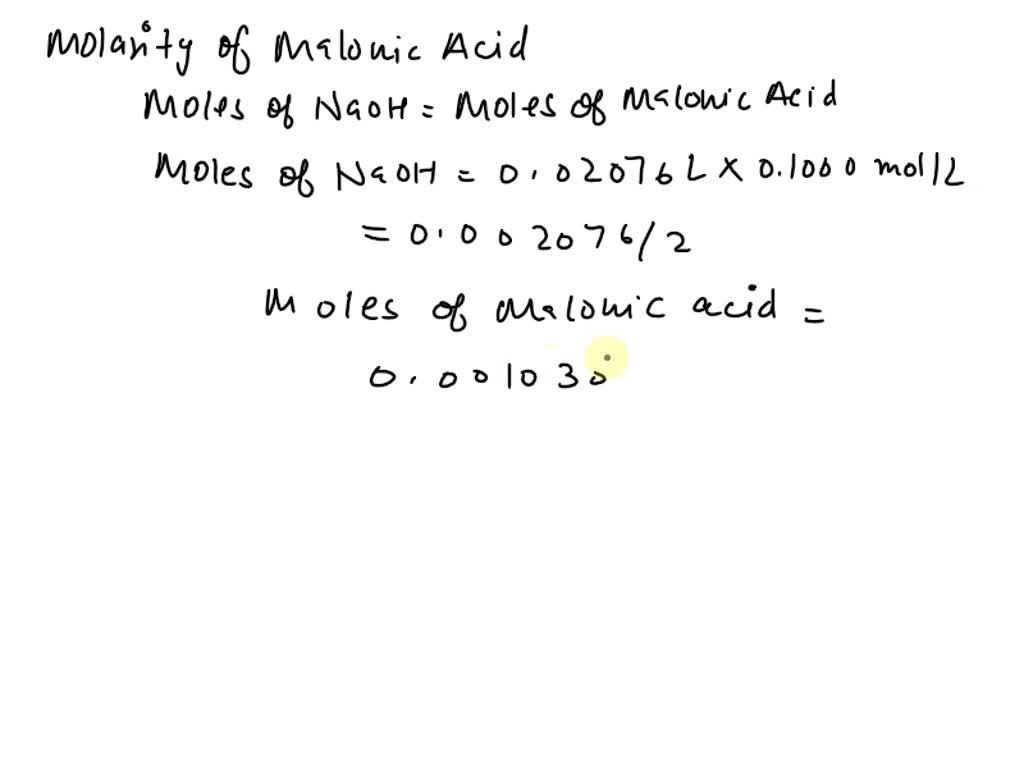 Molarity of Malonic Acid
Moles of NaOH = Moles of Malonic Acid
Moles of NaOH = 0.02076 L X 0.1000 mol/L
= 0.002076/2
Moles of Malonic acid =
0.001030